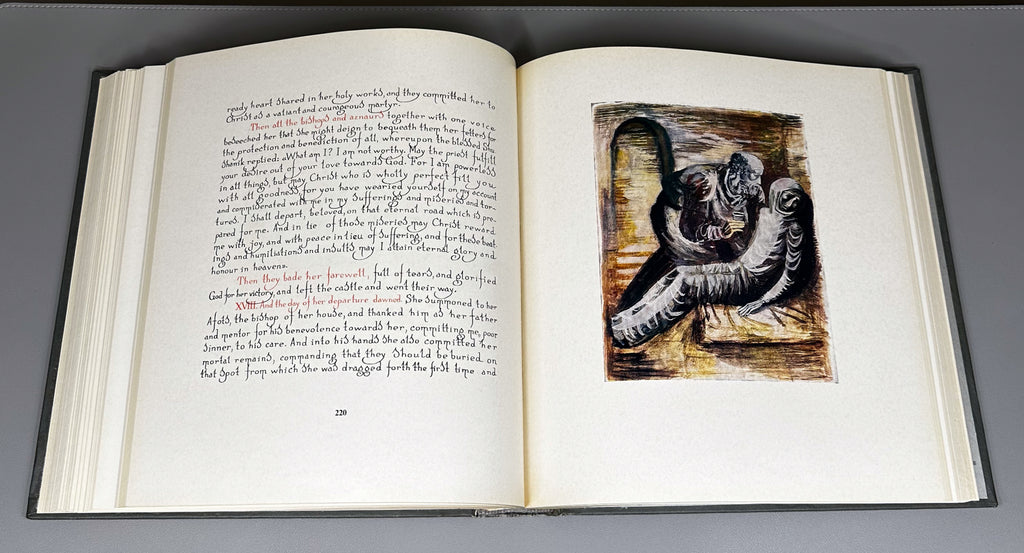 ready heart shared in her holy works, and they committed her to
Christ as a valiant and courageous martyr.
Then all the bishops and aznaurs together with one voice
beseeched her that she might deign to bequeath them her fetters for
the protection and benediction of all, whereupon the blessed Shu-
shanik replied: «What am I? I am not worthy. May the priest fulfill
your desire out of your love towards God. For I am powerless
in all things, but may Christ who is wholly perfect fill you
with all goodness, for you have wearied yourself on my account
and commiserated with me in my sufferings and miseries and tor-
tures. I shall depart, beloved, on that eternal road which is pre-
pared for me. And in lie of those miseries may Christ reward
me with joy, and with peace in lieu of suffering, and for these beat-
ings and humiliations and insults may I attain eternal glory and
honour in heavens.
Then they bade her farewell, full of tears, and glorified
God for her victory, and left the castle and went their way.
XVIII. And the day of her departure dawned. She summoned to her
Afots, the bishop of her house, and thanked him as her father
and mentor for his benevolence towards her, committing me, poor
sinner, to his care. And into his hands she also committed her
mortal remains, commanding that they should be buried on
that spot from which she was dragged forth the first time and
220